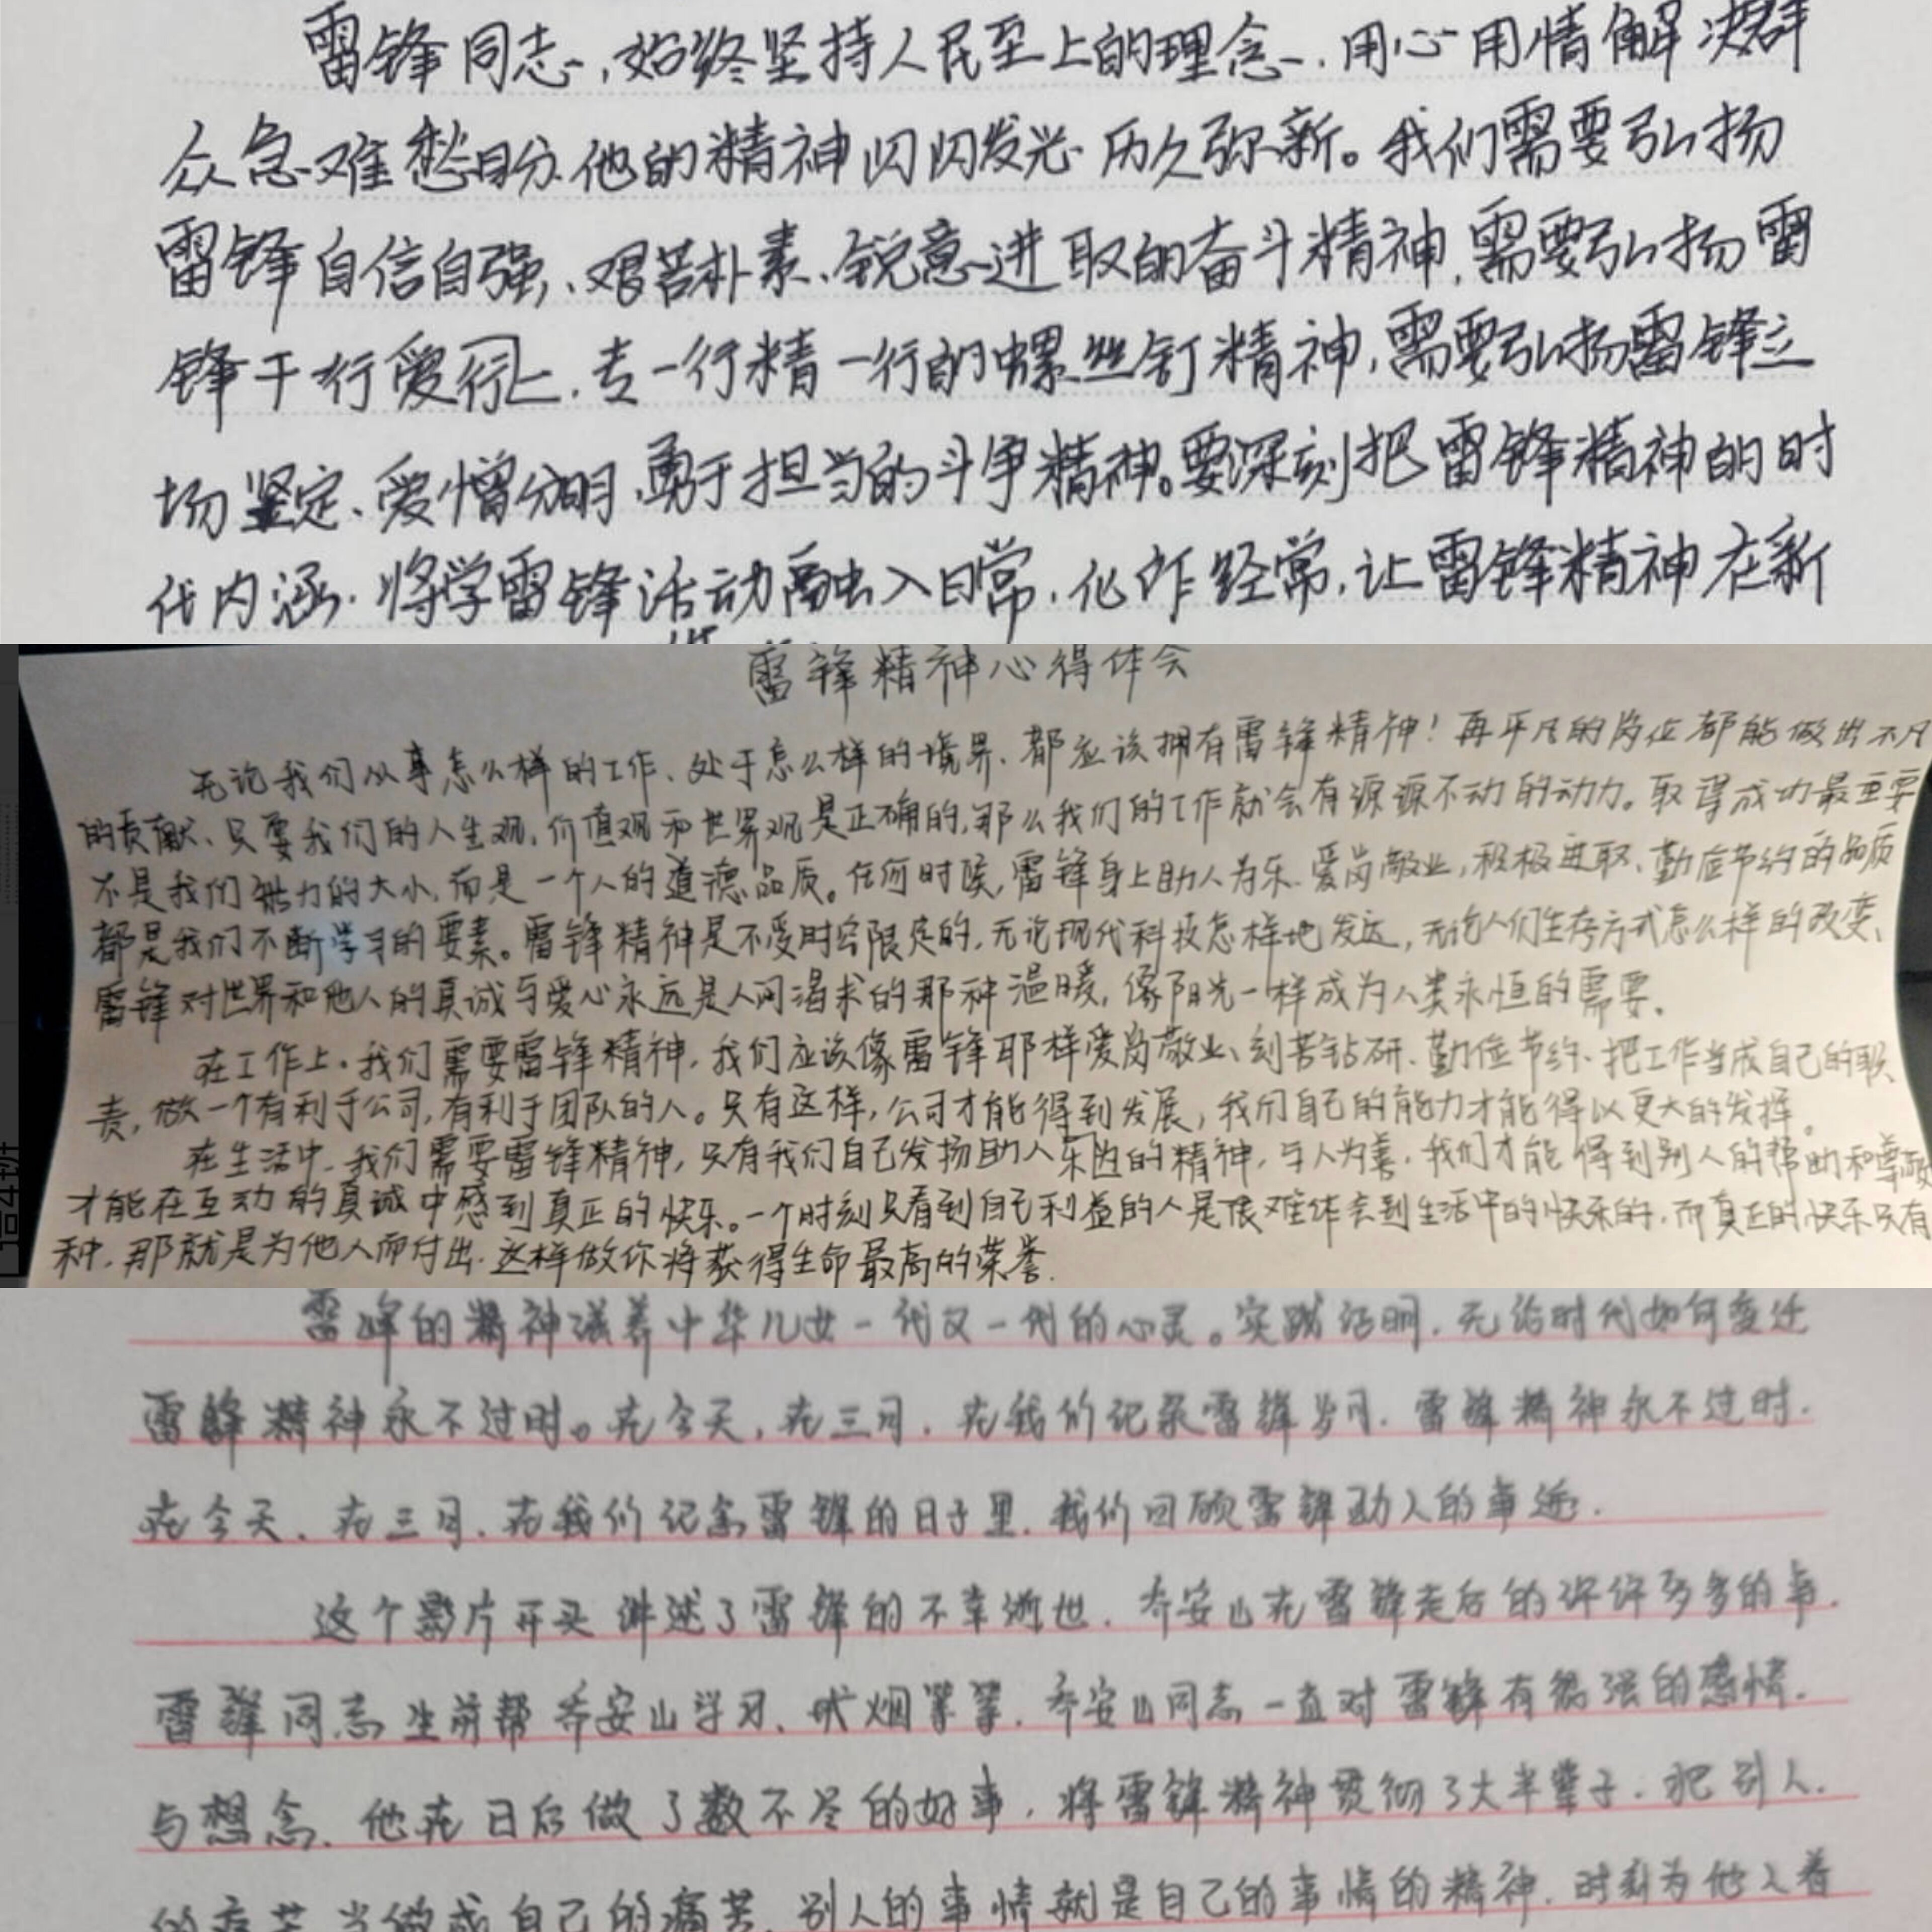 雷锋同志,始终坚持人民至上的理念,用心用情解决群
众急难愁盼,他的精神闪闪发光,历久弥新。我们需要弘扬
雷锋自信自强、艰苦朴素、锐意进取的奋斗精神,需要弘扬雷
锋干一行爱一行、专一行精一行的螺丝钉精神,需要弘扬雷锋立
场坚定、爱憎分明、勇于担当的斗争精神。要深刻把雷锋精神的时
代内涵,将学雷锋活动融入日常,化作经常,让雷锋精神在新
雷锋精神心得体会
无论我们从事怎么样的工作、处于怎么样的境界、都应该拥有雷锋精神!再平凡的岗位都能做出不凡
的贡献、只要我们的人生观,价值观和世界观是正确的,那么我们的工作就会有源源不动的动力。取得成功最重要
不是我们能力的大小,而是一个人的道德品质。任何时候,雷锋身上助人为乐、爱岗敬业,积极进取、勤俭节约的品质
都是我们不断学习的要素。雷锋精神是不受时空限定的,无论现代科技怎样地发达,无论人们生存方式怎么样的改变、
雷锋对世界和他人的真诚与爱心永远是人间渴求的那种温暖,像阳光一样成为人类永恒的需要。
在工作上,我们需要雷锋精神,我们应该像雷锋那样爱岗敬业、刻苦钻研、勤俭节约、把工作当成自己的职
责,做一个有利于公司,有利于团队的人。只有这样,公司才能得到发展,我们自己的能力才能得以更大的发挥。
在生活中,我们需要雷锋精神,只有我们自己发扬助人的精神,与人为善,我们才能得到别人的帮助和尊
才能在互动的真诚中感到真正的快乐。一个时刻只看到自己利益的人是很难体会到生活中的快乐的,而真正的快乐只有
种,那就是为他人而付出,这样做你将获得生命最高的荣誉.
雷锋的精神滋养中华儿女一代又一代的心灵。实践证明,无论时代如何变迁
雷锋精神永不过时。在今天,在三月,在我们记录雷锋岁月,雷锋精神永不过时.
在今天、在三月、在我们记念雷锋的日子里,我们回顾雷锋动人的事迹.
这个影片开头讲述了雷锋的不幸逝世,乔安山在雷锋走后的许许多多的事.
雷锋同志生前帮乔安山学习、戒烟等等,乔安山同志一直对雷锋有很强的感情.
与想念.他在日后做了数不尽的好事,将雷锋精神贯彻了大半辈子.把别人.
的痛苦当做成自己的痛苦,别人的事情就是自己的事情的精神,时刻为他人着